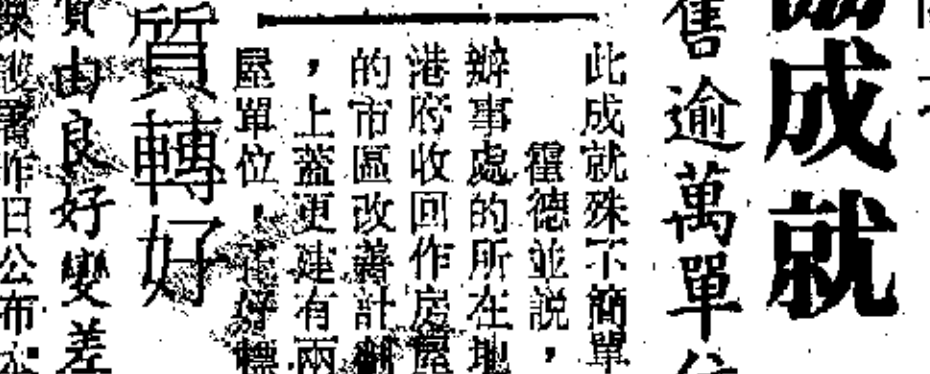 成就
售逾萬單位
此成就殊不簡單
霍德並説，
辦事處的所在地
港府收回作房屋
的市區改善計劃
，上蓋更建有兩
屋單位，好標
質轉好
質由良好變差
署昨日公布